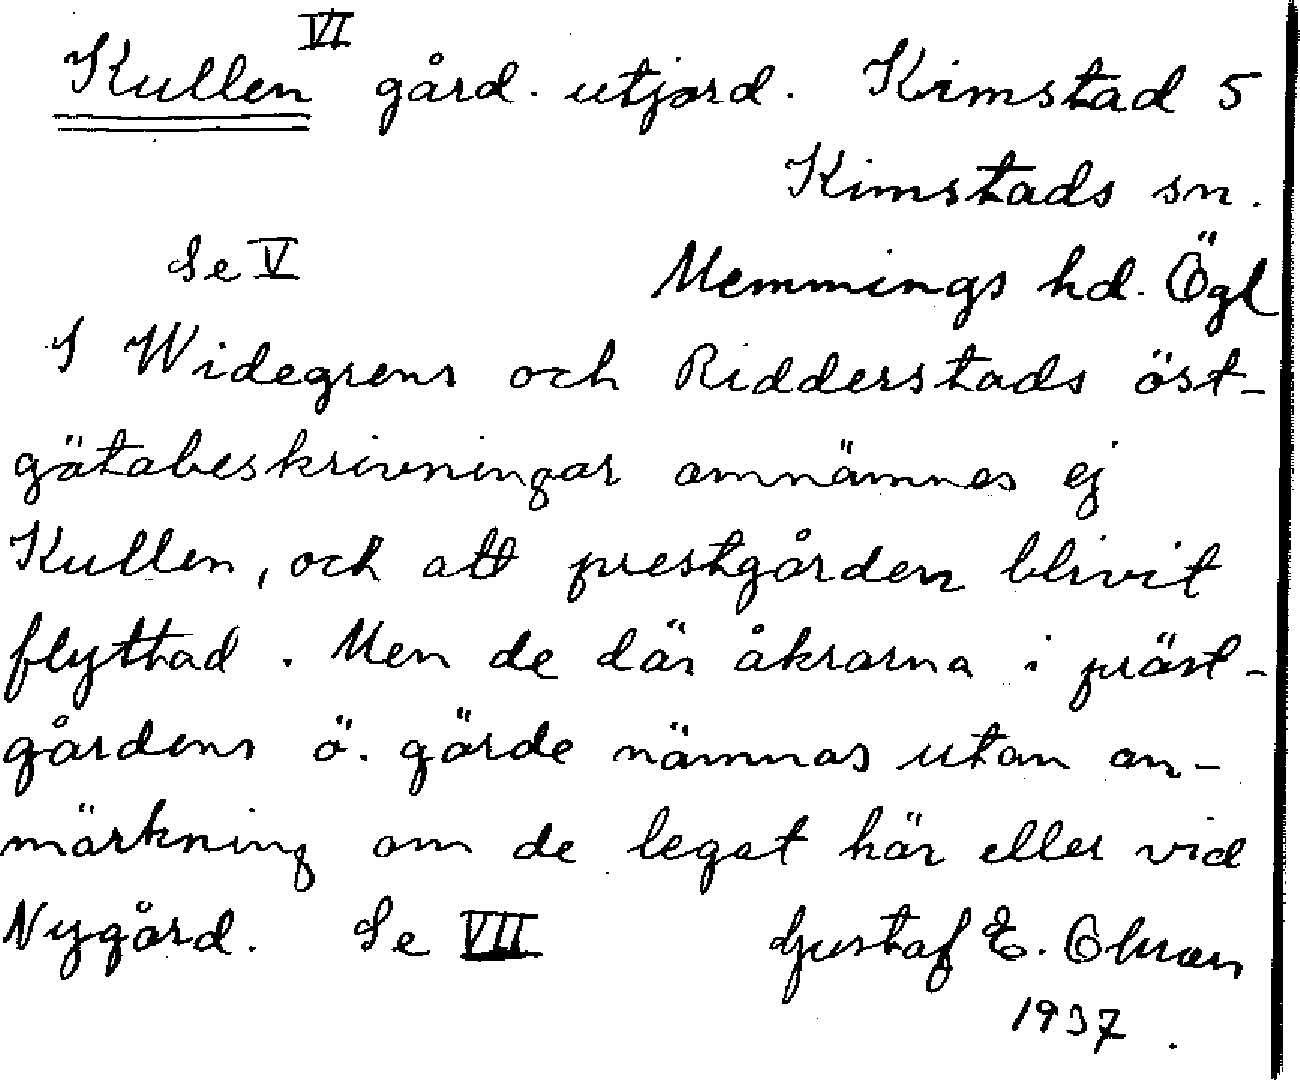 Kullen VI gård. utjord. Kimstad 5
Kimstads sn.
Se V Memmings hd. Ögl
I Widegrens och Ridderstads öst-
götabeskrivningar omnämnes ej
Kullen, och att prestgården blivit
flyttad. Men de där åkrarna i präst-
gårdens ö. gärde nämnas utan an-
märkning om de legat här eller vid
Nygård. Se VII Gustaf E.
1937.